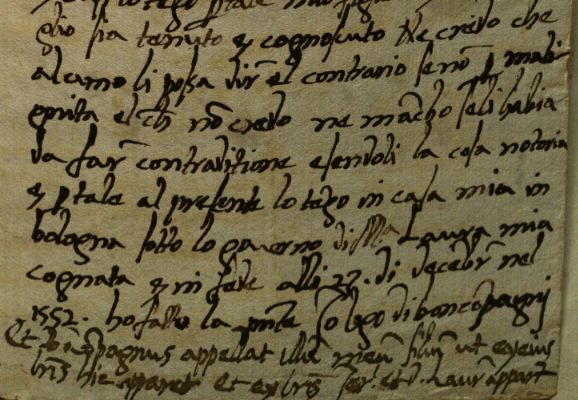 lo tego p tale mio
glio sia tenuto et cognosciuto Ne credo che
alcuno li possa dir el contrario se nō p mali
gnita el ch nō credo ne mācho seli habia
da far contraditione esendoli la cosa notoria
et p tale al presente lo tēgo in casa mia in
bologna sotto lo governo di Mª Laura mia
cognata et in fede alli 22. di decēbr nel
1552. ho fatto la pnte Io Ugo di boncōpagnj
Et Bōcōpagnus appellat illū meū filiū ut ex eius
lris hic apparet Et ex lris Laurā